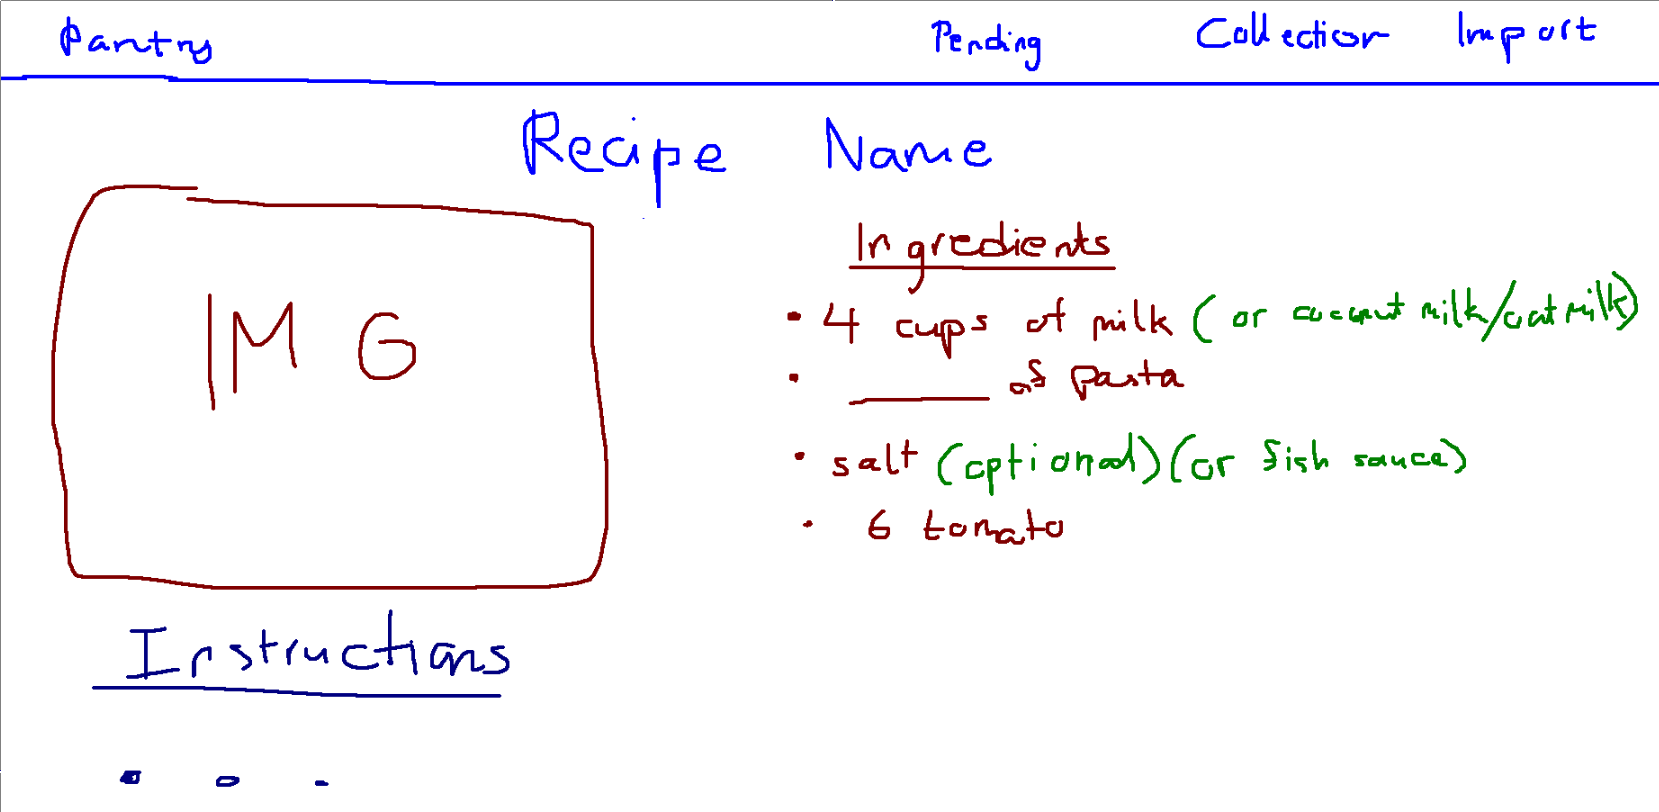 Pantry Pending Collection Import
Recipe Name
IMG
Ingredients
• 4 cups of milk (or coconut milk/oat milk)
• ______ of pasta
• salt (optional) (or fish sauce)
• 6 tomato
Instructions